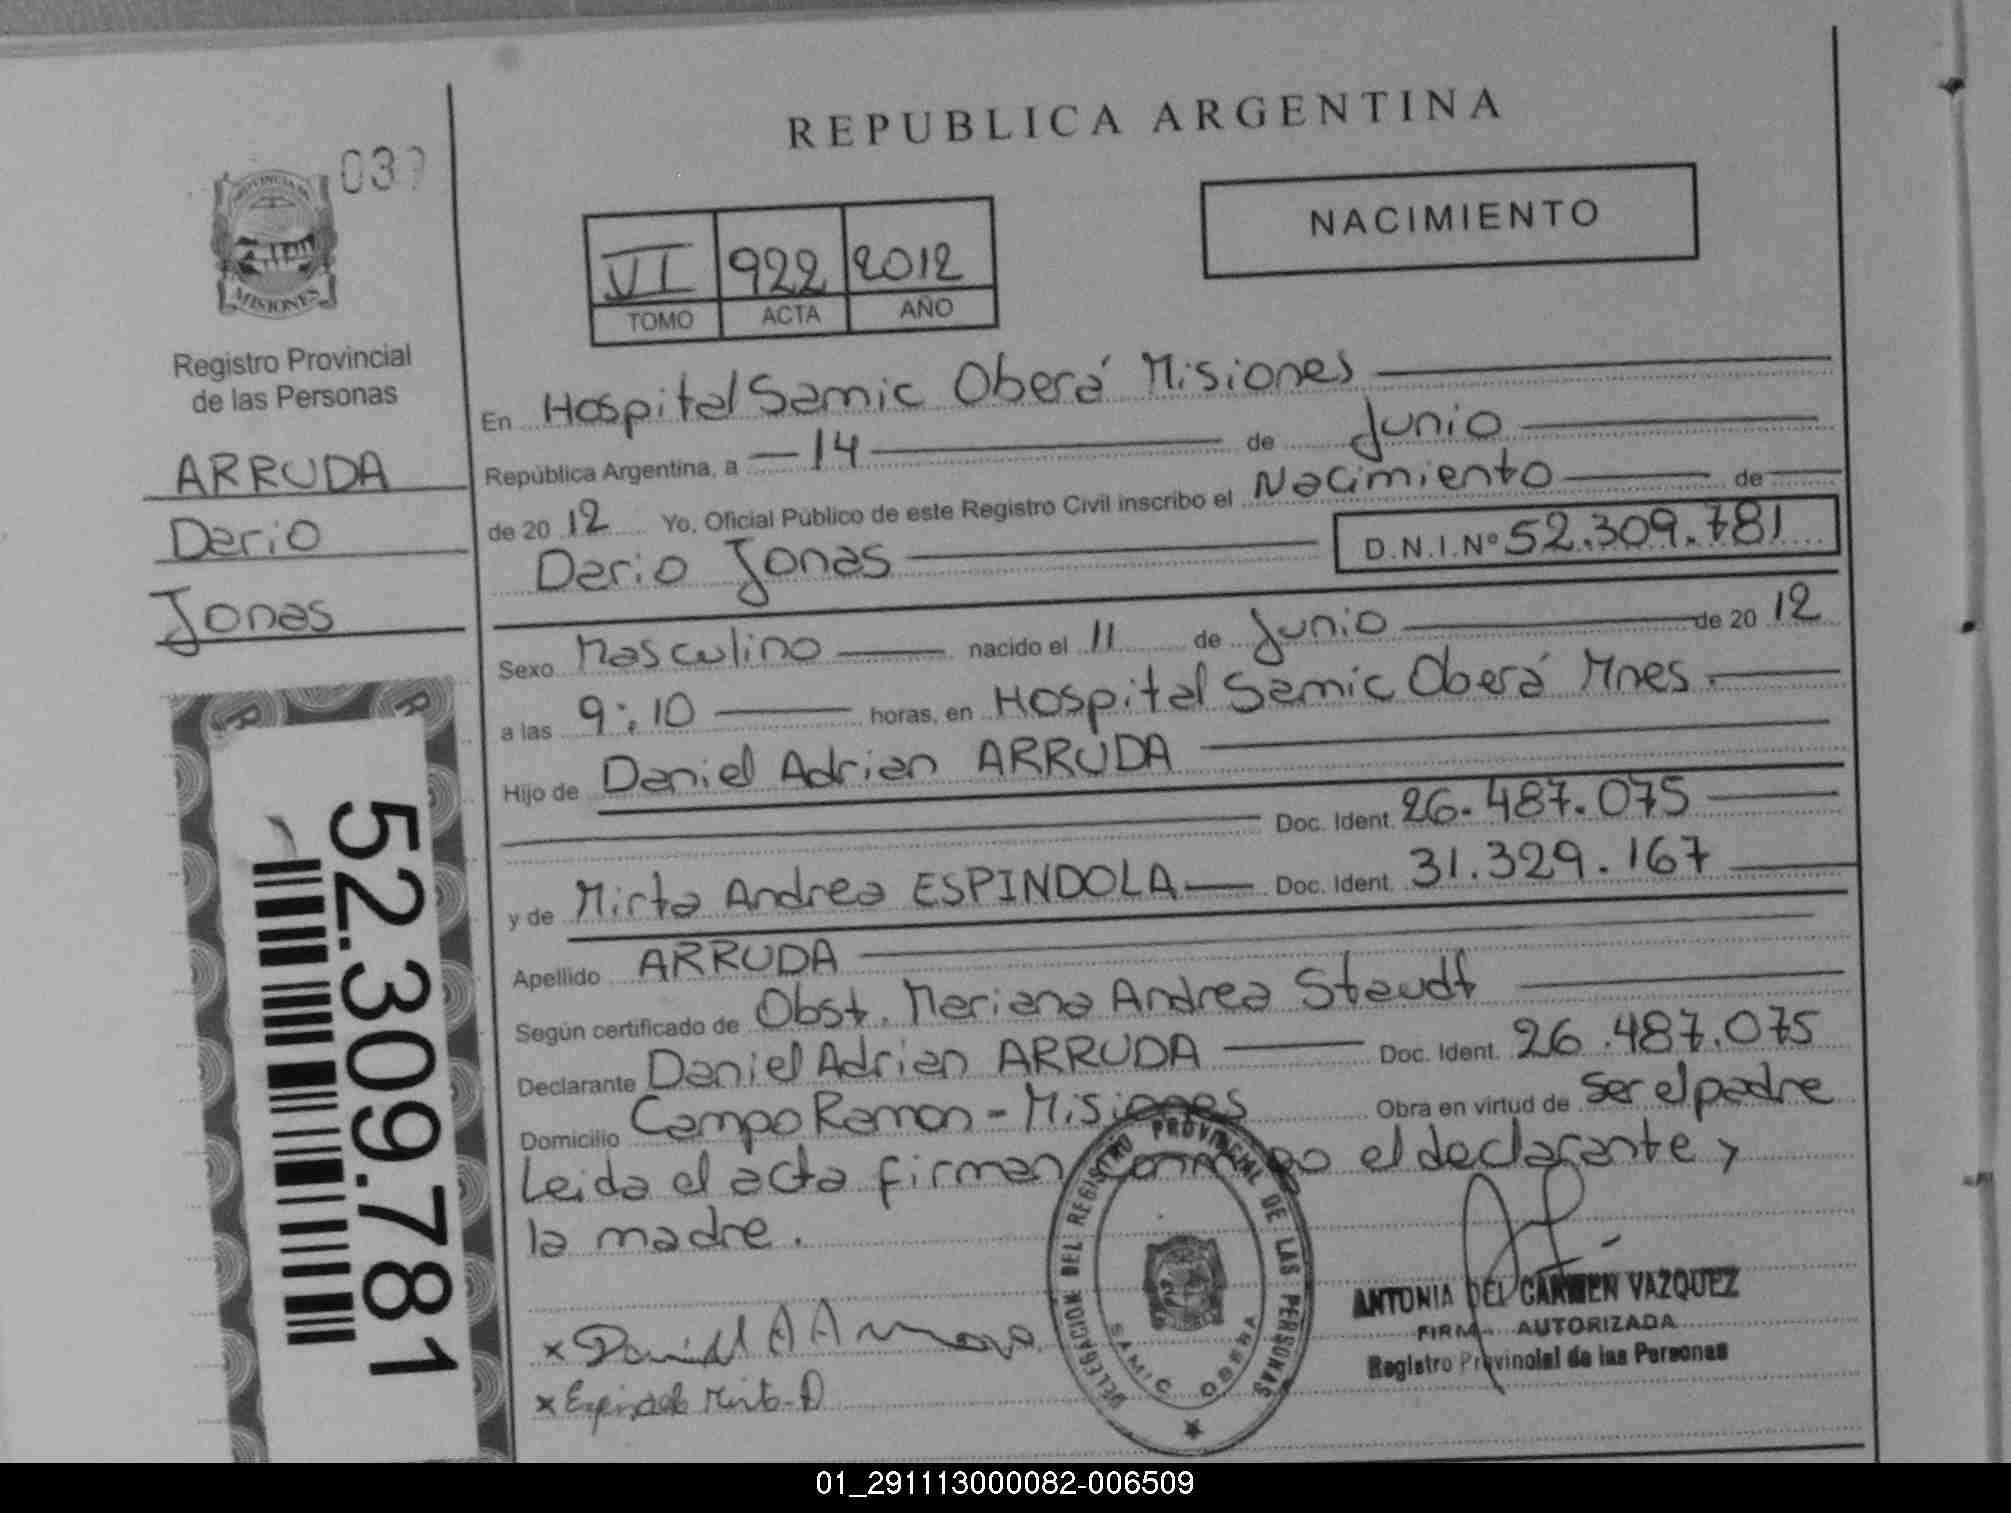 REPUBLICA ARGENTINA
PROVINCIA DE
MISIONES
Registro Provincial
de las Personas
ARRUDA
Dario
Jonas
52.309.781
NACIMIENTO
VI 922 2012
TOMO ACTA AÑO
En Hospital Samic Oberá Misiones
República Argentina, a 14 de Junio
de 20 12 Yo, Oficial Público de este Registro Civil inscribo el Nacimiento de
Dario Jonas D.N.I.Nº 52.309.781
Sexo Masculino nacido el 11 de Junio de 20 12
a las 9:10 horas, en Hospital Samic Oberá Mnes.
Hijo de Daniel Adrian ARRUDA
Doc. Ident. 26.487.075
y de Mirta Andrea ESPINDOLA Doc. Ident. 31.329.167
Apellido ARRUDA
Según certificado de Obst. Mariana Andrea Staudt
Declarante Daniel Adrian ARRUDA Doc. Ident. 26.487.075
Domicilio Campo Ramon - Misiones Obra en virtud de ser el padre
Leida el acta firman conmigo el declarante y
la madre.
DELEGACION DEL REGISTRO PROVINCIAL DE LAS PERSONAS
SAMIC OBERA
ANTONIA DEL CARMEN VAZQUEZ
FIRMA AUTORIZADA
Registro Provincial de las Personas
x Daniel A
x Mirta A
01_291113000082-006509